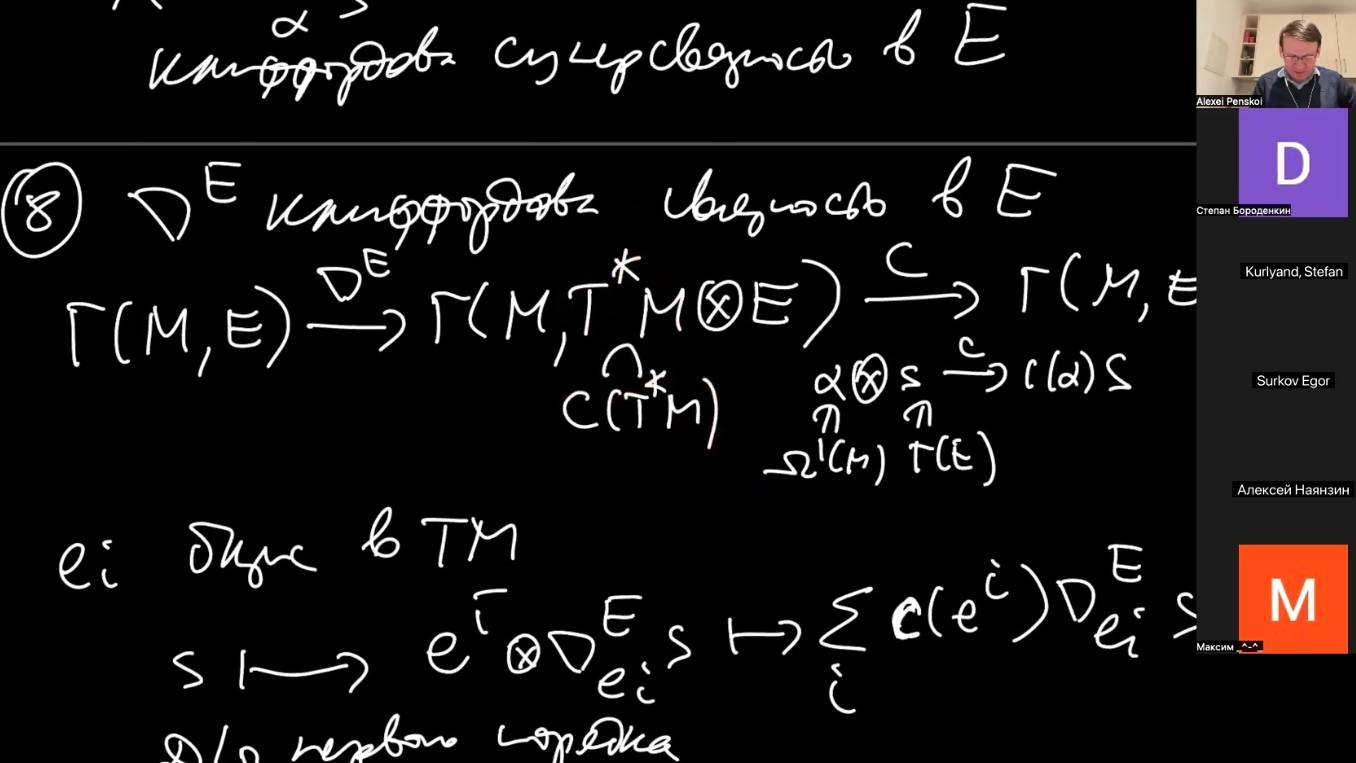 α
клиффордова суперсвязность в E
⑧ ∇^E клиффордова связность в E
Γ(M, E) —∇^E→ Γ(M, T*M ⊗ E) —c→ Γ(M, E
∩
C(T*M)
α ⊗ s —c→ c(α) s
Ω¹(M) Γ(E)
e_i базис в TM
s ↦ e^i ⊗ ∇^E_{e_i} s ↦ Σ_i c(e^i) ∇^E_{e_i} s
Д/О первого порядка
Alexei Penskoi
D
Степан Бороденкин
Kurlyand, Stefan
Surkov Egor
Алексей Наянзин
M
Максим ^-^